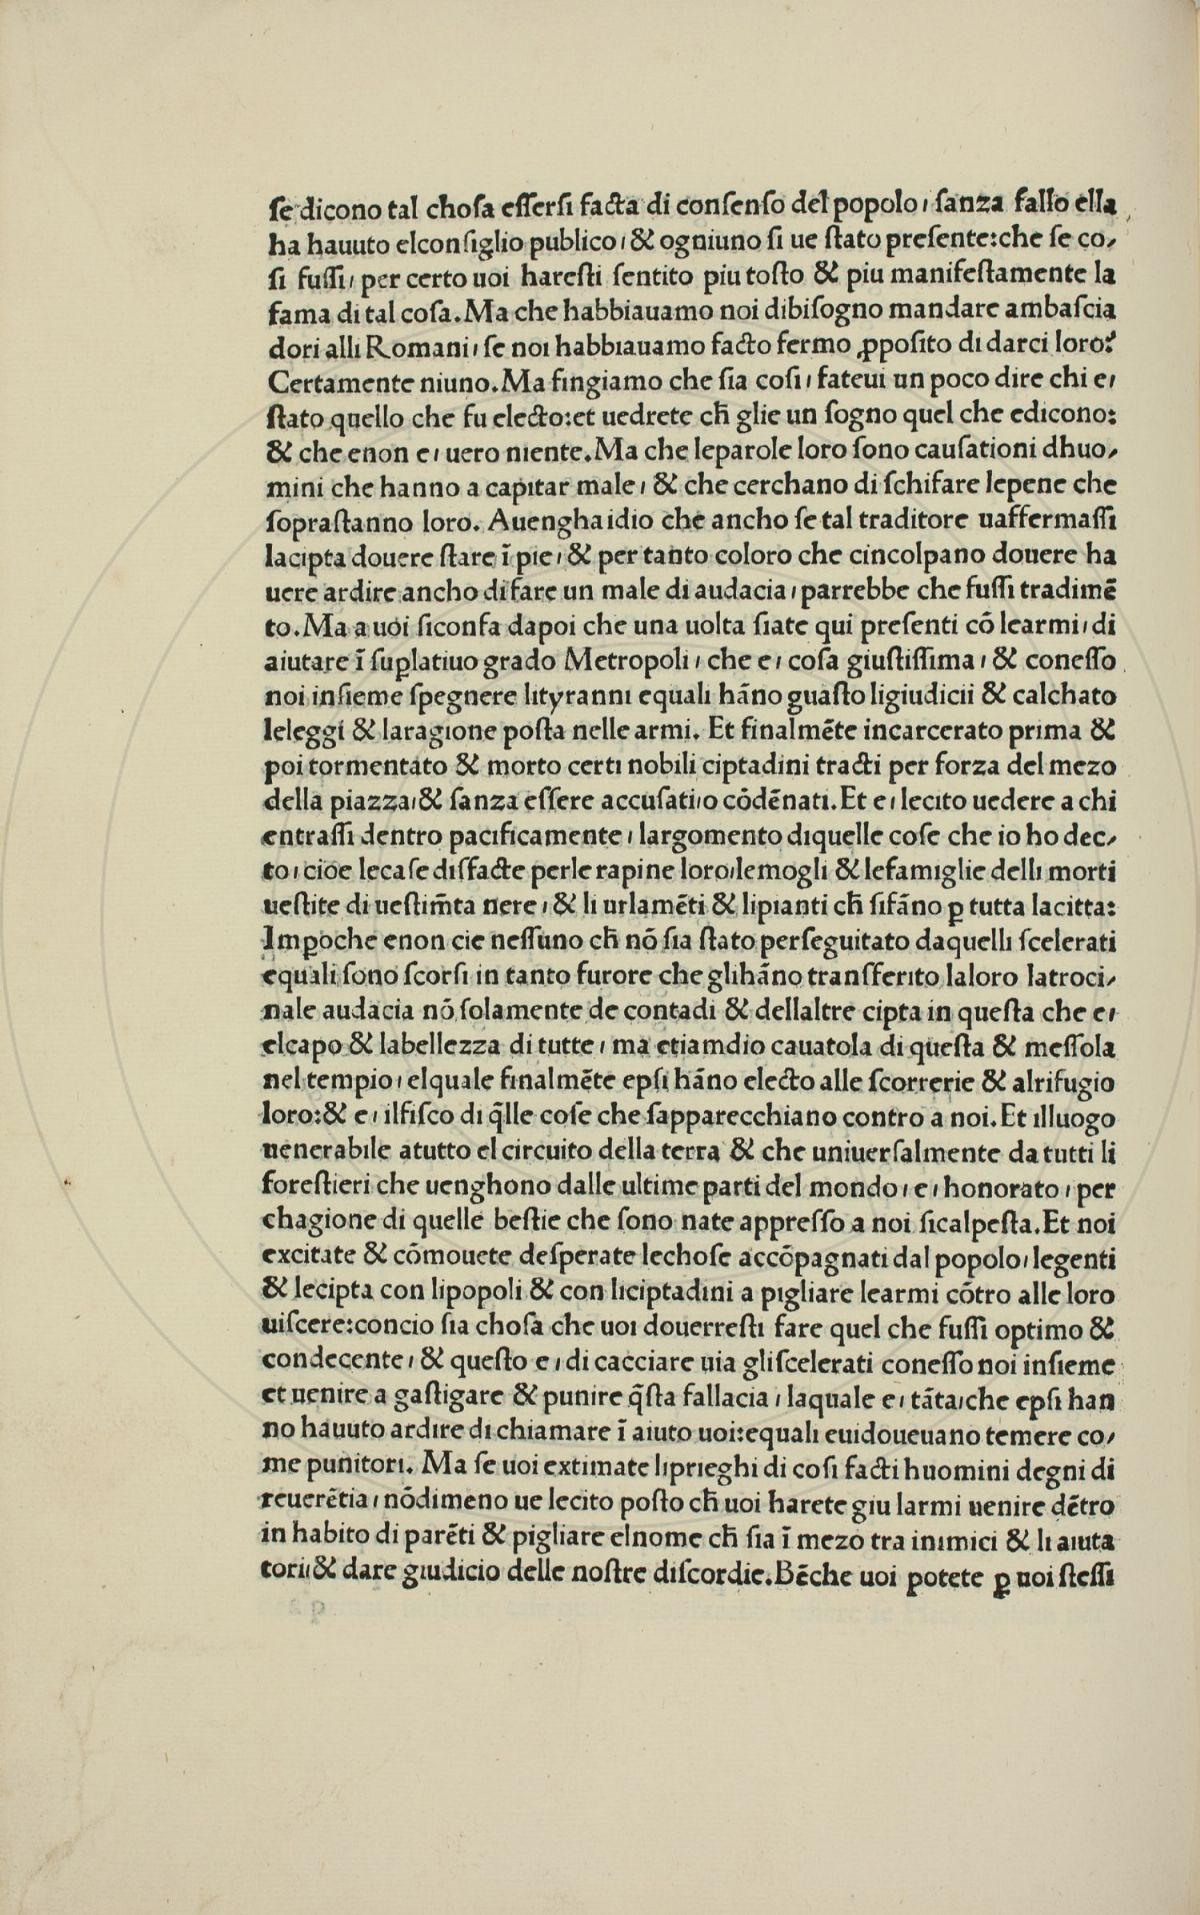 se dicono tal chosa essersi facta di consenso del popolo, sanza fallo ella
ha hauuto elconsiglio publico, & ogniuno si ue stato presente:che se co-
si fussi, per certo uoi haresti sentito piu tosto & piu manifestamente la
fama di tal cosa.Ma che habbiauamo noi dibisogno mandare ambascia
dori alli Romani, se noi habbiauamo facto fermo ꝓposito di darci loro?
Certamente niuno.Ma fingiamo che sia cosi, fateui un poco dire chi e,
stato quello che fu electo:et uedrete cħ glie un sogno quel che edicono:
& che enon e, uero niente.Ma che leparole loro sono causationi dhuo-
mini che hanno a capitar male, & che cerchano di schifare lepene che
soprastanno loro. Auenghaidio che ancho se tal traditore uaffermassi
lacipta douere stare ĩ pie, & per tanto coloro che cincolpano douere ha
uere ardire ancho di fare un male di audacia, parrebbe che fussi tradimẽ
to.Ma a uoi siconfa dapoi che una uolta siate qui presenti cõ learmi, di
aiutare ĩ suꝑlatiuo grado Metropoli, che e, cosa giustissima, & conesso
noi insieme spegnere lityranni equali hãno guasto ligiudicii & calchato
leleggi & laragione posta nelle armi. Et finalmẽte incarcerato prima &
poi tormentato & morto certi nobili ciptadini tracti per forza del mezo
della piazza,& sanza essere accusati,o cõdẽnati.Et e, lecito uedere a chi
entrassi dentro pacificamente, largomento diquelle cose che io ho dec-
to, cioe lecase disfacte perle rapine loro,lemogli & lefamiglie delli morti
uestite di uestim̃ta nere, & li urlamẽti & lipianti cħ sifãno ꝑ tutta lacitta:
Imꝑoche enon cie nessuno cħ nõ sia stato perseguitato daquelli scelerati
equali sono scorsi in tanto furore che glihãno transferito laloro latroci-
nale audacia nõ solamente de contadi & dellaltre cipta in questa che e,
elcapo & labellezza di tutte, ma etiamdio cauatola di questa & messola
nel tempio, elquale finalmẽte epsi hãno electo alle scorrerie & alrifugio
loro:& e, ilfisco di q̃lle cose che sapparecchiano contro a noi.Et illuogo
uenerabile atutto el circuito della terra & che uniuersalmente da tutti li
forestieri che uenghono dalle ultime parti del mondo, e, honorato, per
chagione di quelle bestie che sono nate appresso a noi sicalpesta.Et noi
excitate & cõmouete desperate lechose accõpagnati dal popolo, legenti
& lecipta con lipopoli & con liciptadini a pigliare learmi cõtro alle loro
uiscere:concio sia chosa che uoi douerresti fare quel che fussi optimo &
condecente, & questo e, di cacciare uia gliscelerati conesso noi insieme
et uenire a gastigare & punire q̃sta fallacia, laquale e, tãta,che epsi han
no hauuto ardire di chiamare ĩ aiuto uoi:equali euidoueuano temere co-
me punitori. Ma se uoi extimate liprieghi di cosi facti huomini degni di
reuerẽtia, nõdimeno ue lecito posto cħ uoi harete giu larmi uenire dẽtro
in habito di parẽti & pigliare elnome cħ sia ĩ mezo tra inimici & li aiuta
tori,& dare giudicio delle nostre discordie.Bẽche uoi potete ꝑ uoi stessi